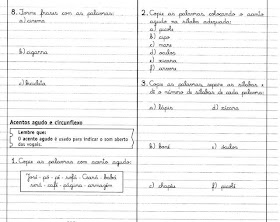 8. Forme frases com as palavras:
a) cinema
b) cigarra
c) bicicleta
Acentos agudo e circunflexo
Lembre que:
O acento agudo é usado para indicar o som aberto
das vogais.
1. Copie as palavras com acento agudo:
José - pó - pé - sofá - Ceará - bebê
será - café - página - armazém
2. Copie as palavras colocando o acento
agudo na sílaba adequada:
a)
b)
c) mare
d) oculos
e) xicara
f) arvore
3. Copie as palavras, separe as sílabas e
dê o número de sílabas de cada palavra:
a) lápis
d) xícara
b) boné
e) óculos
c) chapéu
f)